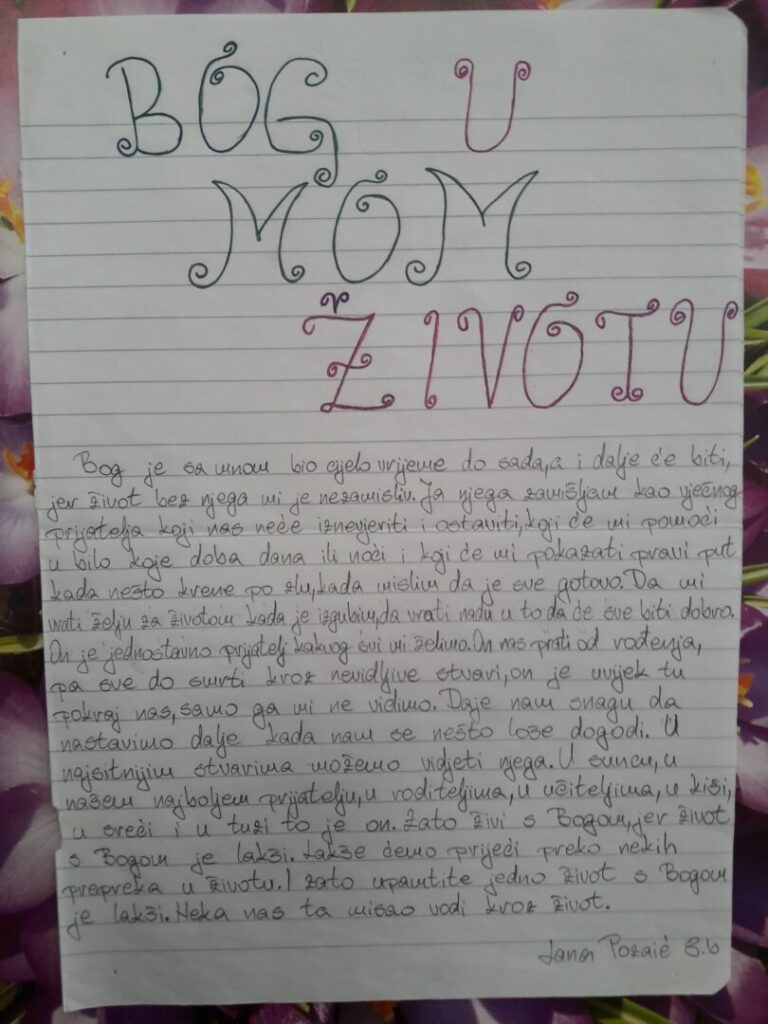 BOG U
MOM
ŽIVOTU
Bog je sa mnom bio cijelo vrijeme do sada, a i dalje će biti,
jer život bez njega mi je nezamisliv. Ja njega zamišljam kao vječnog
prijatelja koji nas neće iznevjeriti i ostaviti, koji će mi pomoći
u bilo koje doba dana ili noći i koji će mi pokazati pravi put
kada nešto krene po zlu, kada mislim da je sve gotovo. Da mi
vrati želju za životom kada je izgubim, da vrati nadu u to da će sve biti dobro.
On je jednostavno prijatelj kakvog svi mi želimo. On nas prati od rođenja,
pa sve do smrti kroz nevidljive stvari, on je uvijek tu
pokraj nas, samo ga mi ne vidimo. Daje nam snagu da
nastavimo dalje kada nam se nešto loše dogodi. U
najsitnijim stvarima možemo vidjeti njega. U suncu, u
našem najboljem prijatelju, u roditeljima, u učiteljima, u kiši,
u sreći i u tuzi to je on. Zato živi s Bogom, jer život
s Bogom je lakši. Lakše ćemo prijeći preko nekih
prepreka u životu. I zato upamtite jedno život s Bogom
je lakši. Neka nas ta misao vodi kroz život.
Jana Pozaić 8.b